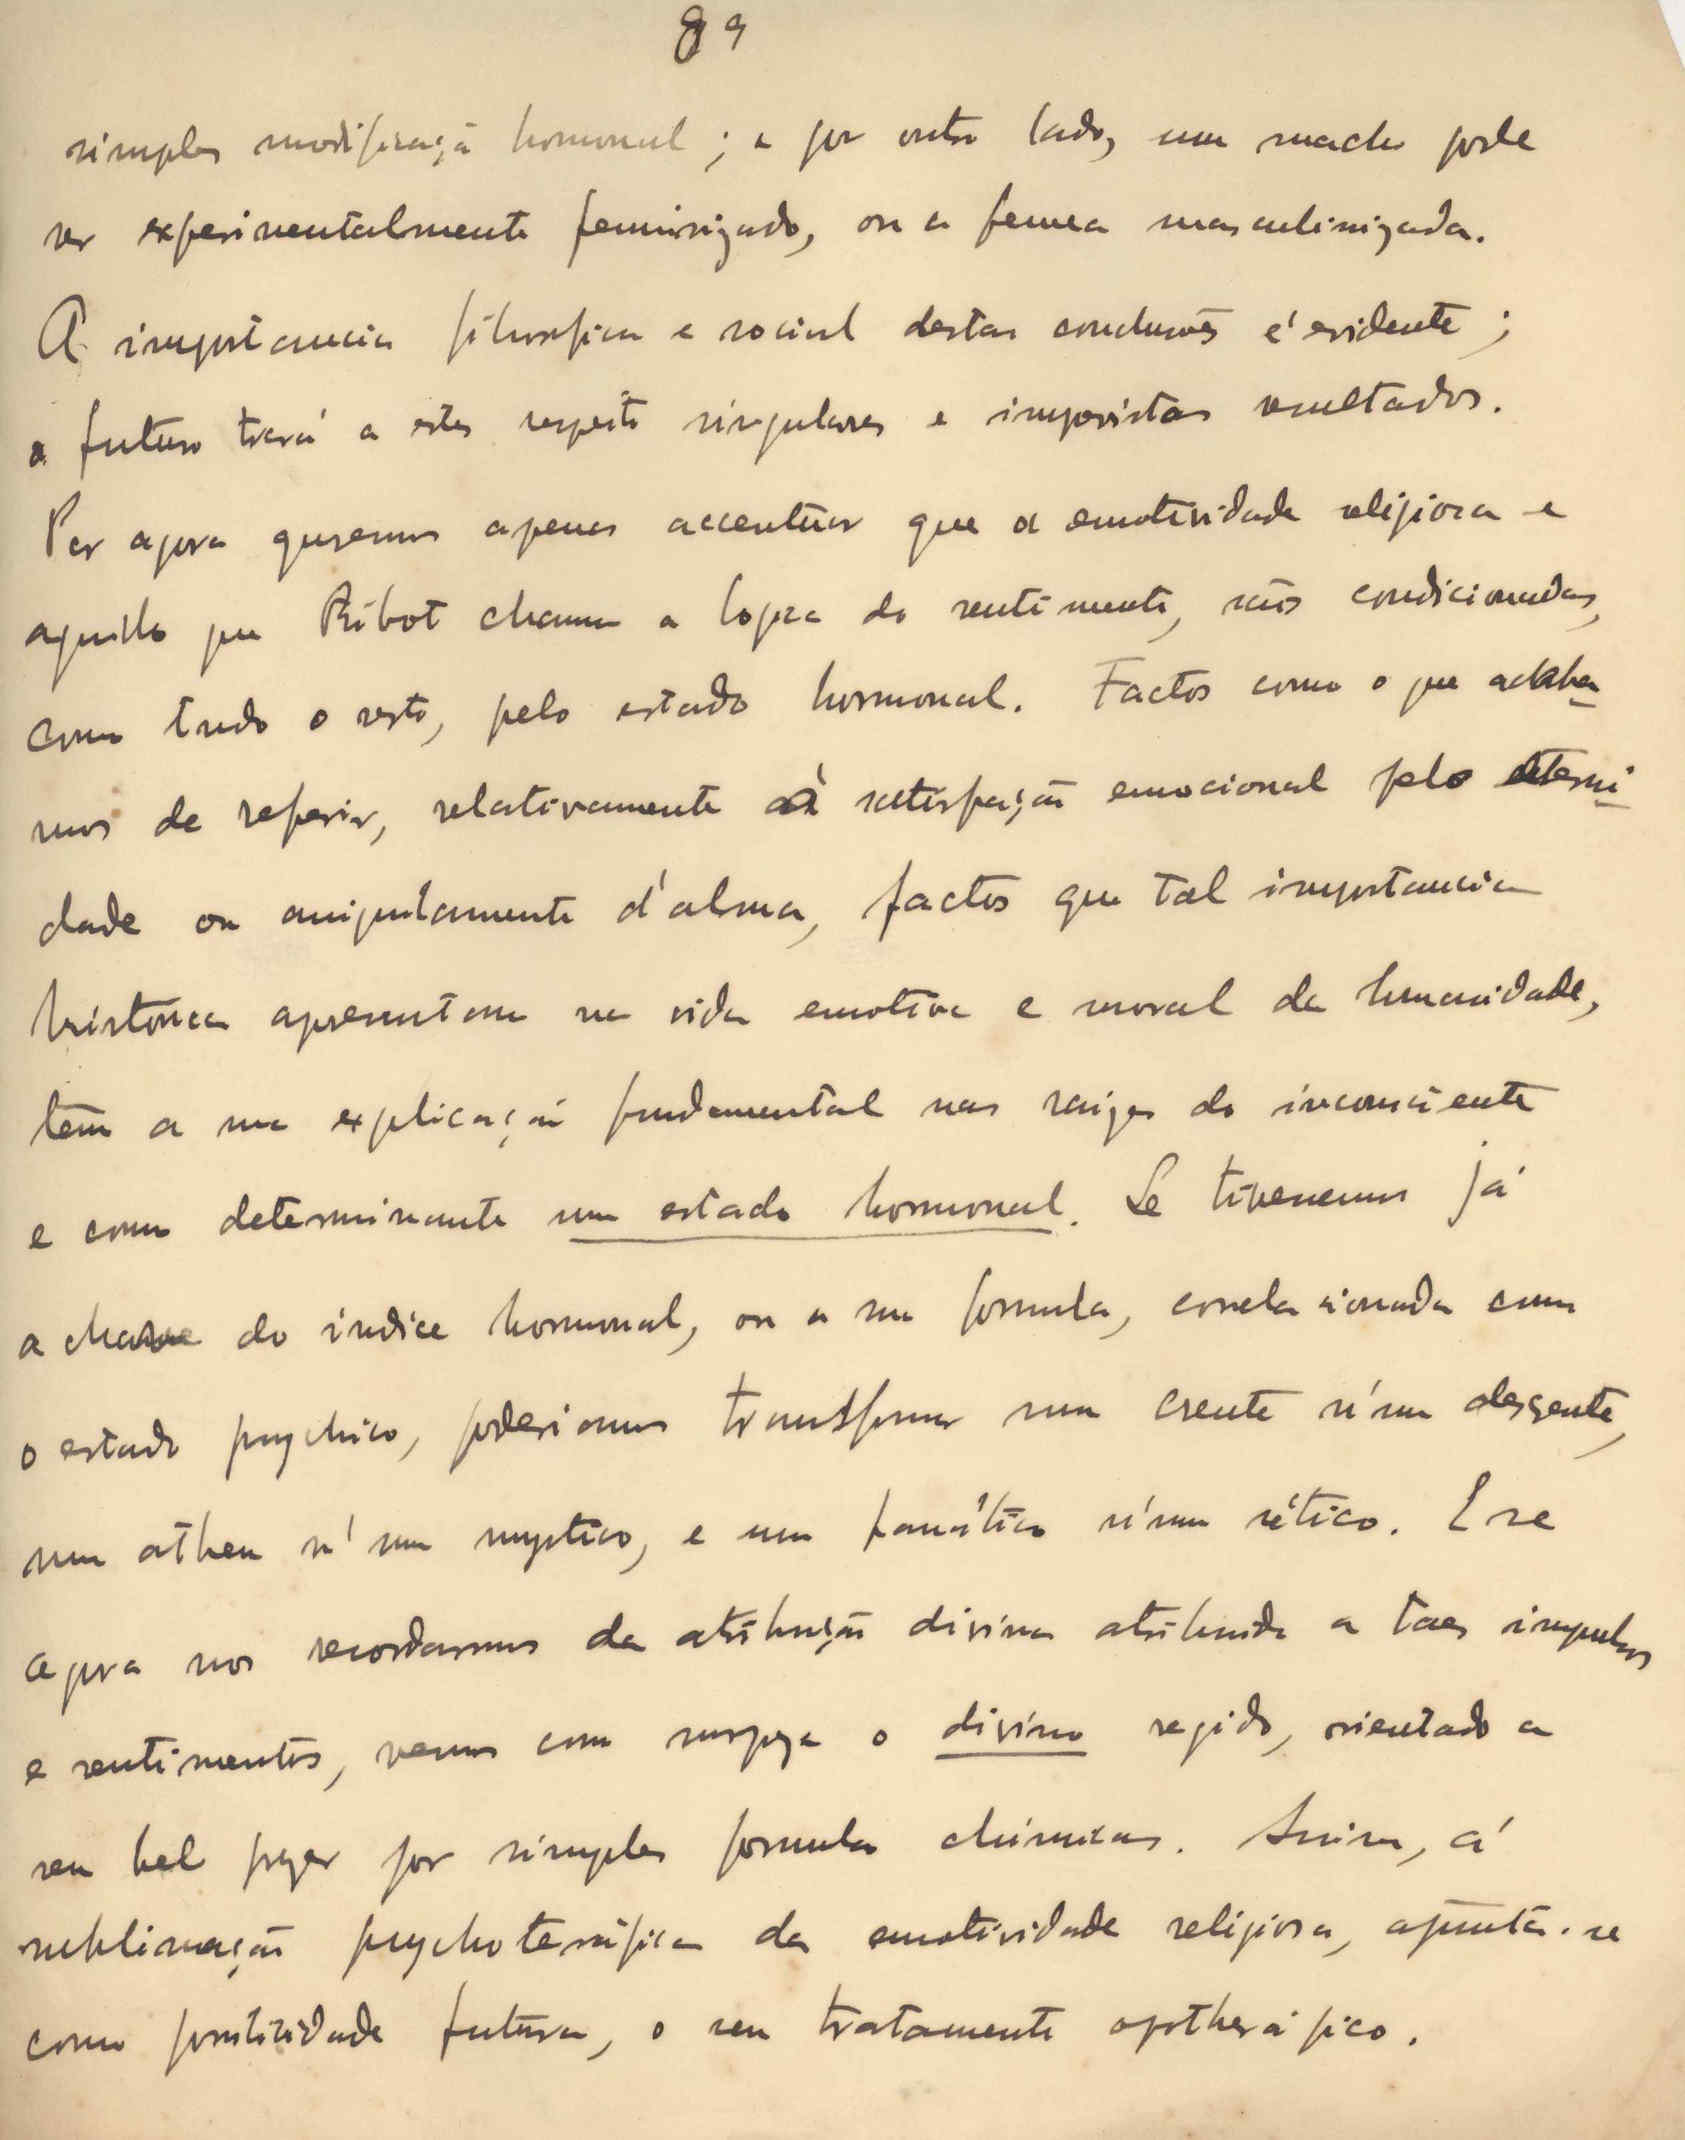 89
simples modificação hormonal; e por outro lado, um macho pode
ser experimentalmente feminizado, ou a femea masculinizada.
A importancia filosofica e social destas conclusões é evidente;
o futuro trará a estes respeito singulares e imprevistos resultados.
Por agora queremos apenas accentuar que a emotividade religiosa e
aquillo que Ribot chama a logica do sentimento, são condicionadas,
como tudo o resto, pelo estado hormonal. Factos como o que acaba-
mos de referir, relativamente á satisfação emocional pela eterni-
dade ou aniquilamento d'alma, factos que tal importancia
historica apresentam na vida emotiva e moral da humanidade,
têm a sua explicação fundamental nas raizes do inconsciente
e como determinante um estado hormonal. Se tivessemos já
a chave do indice hormonal, ou a sua formula, correlacionada com
o estado psychico, poderiamos transformar um crente n'um descrente,
um atheu n'um mystico, e um fanático n'um sético. E se
agora nos recordarmos da atribuição divina atribuida a taes impulsos
e sentimentos, vemos com surpreza o divino regido, orientado a
seu bel prazer por simples formulas chimicas. Assim, á
sublimação psychoterápica da emotividade religiosa, ajunta-se
como possibilidade futura, o seu tratamento opotherápico.